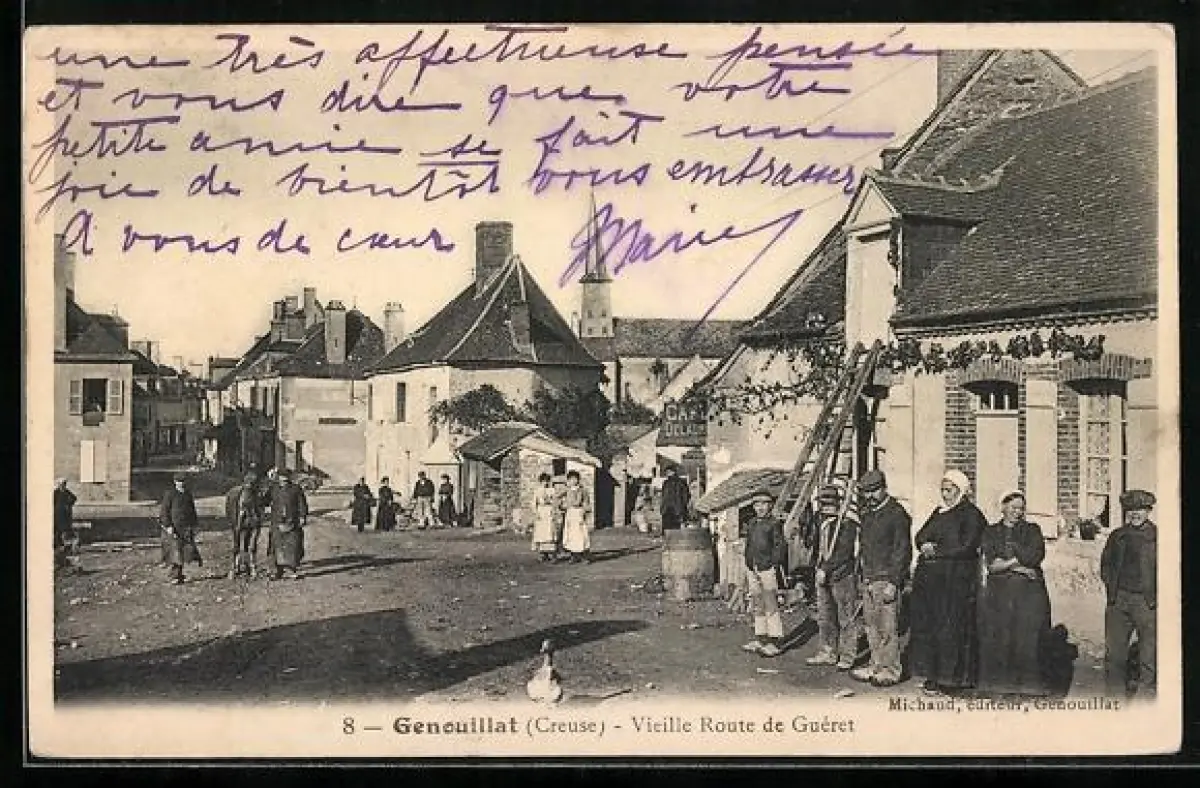 une très affectueuse pensée
et vous dire que votre
petite amie se fait une
joie de bientôt vous embrasser
A vous de cœur
Marie
CAFÉ
Michaud, éditeur, Genouillat
8 — Genouillat (Creuse) - Vieille Route de Guéret